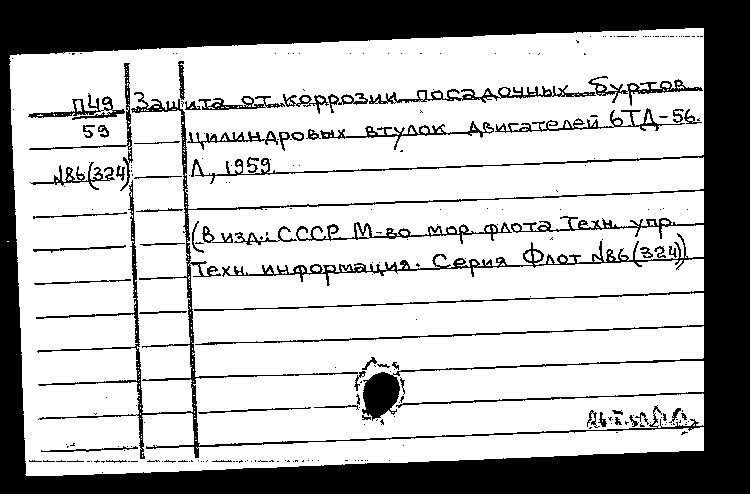 П49 Защита от коррозии посадочных буртов
59 цилиндровых втулок двигателей 6ТД-56.
№86(324) Л, 1959.
(В изд.: СССР М-во мор. флота Техн. упр.
Техн. информация. Серия Флот №86(324))